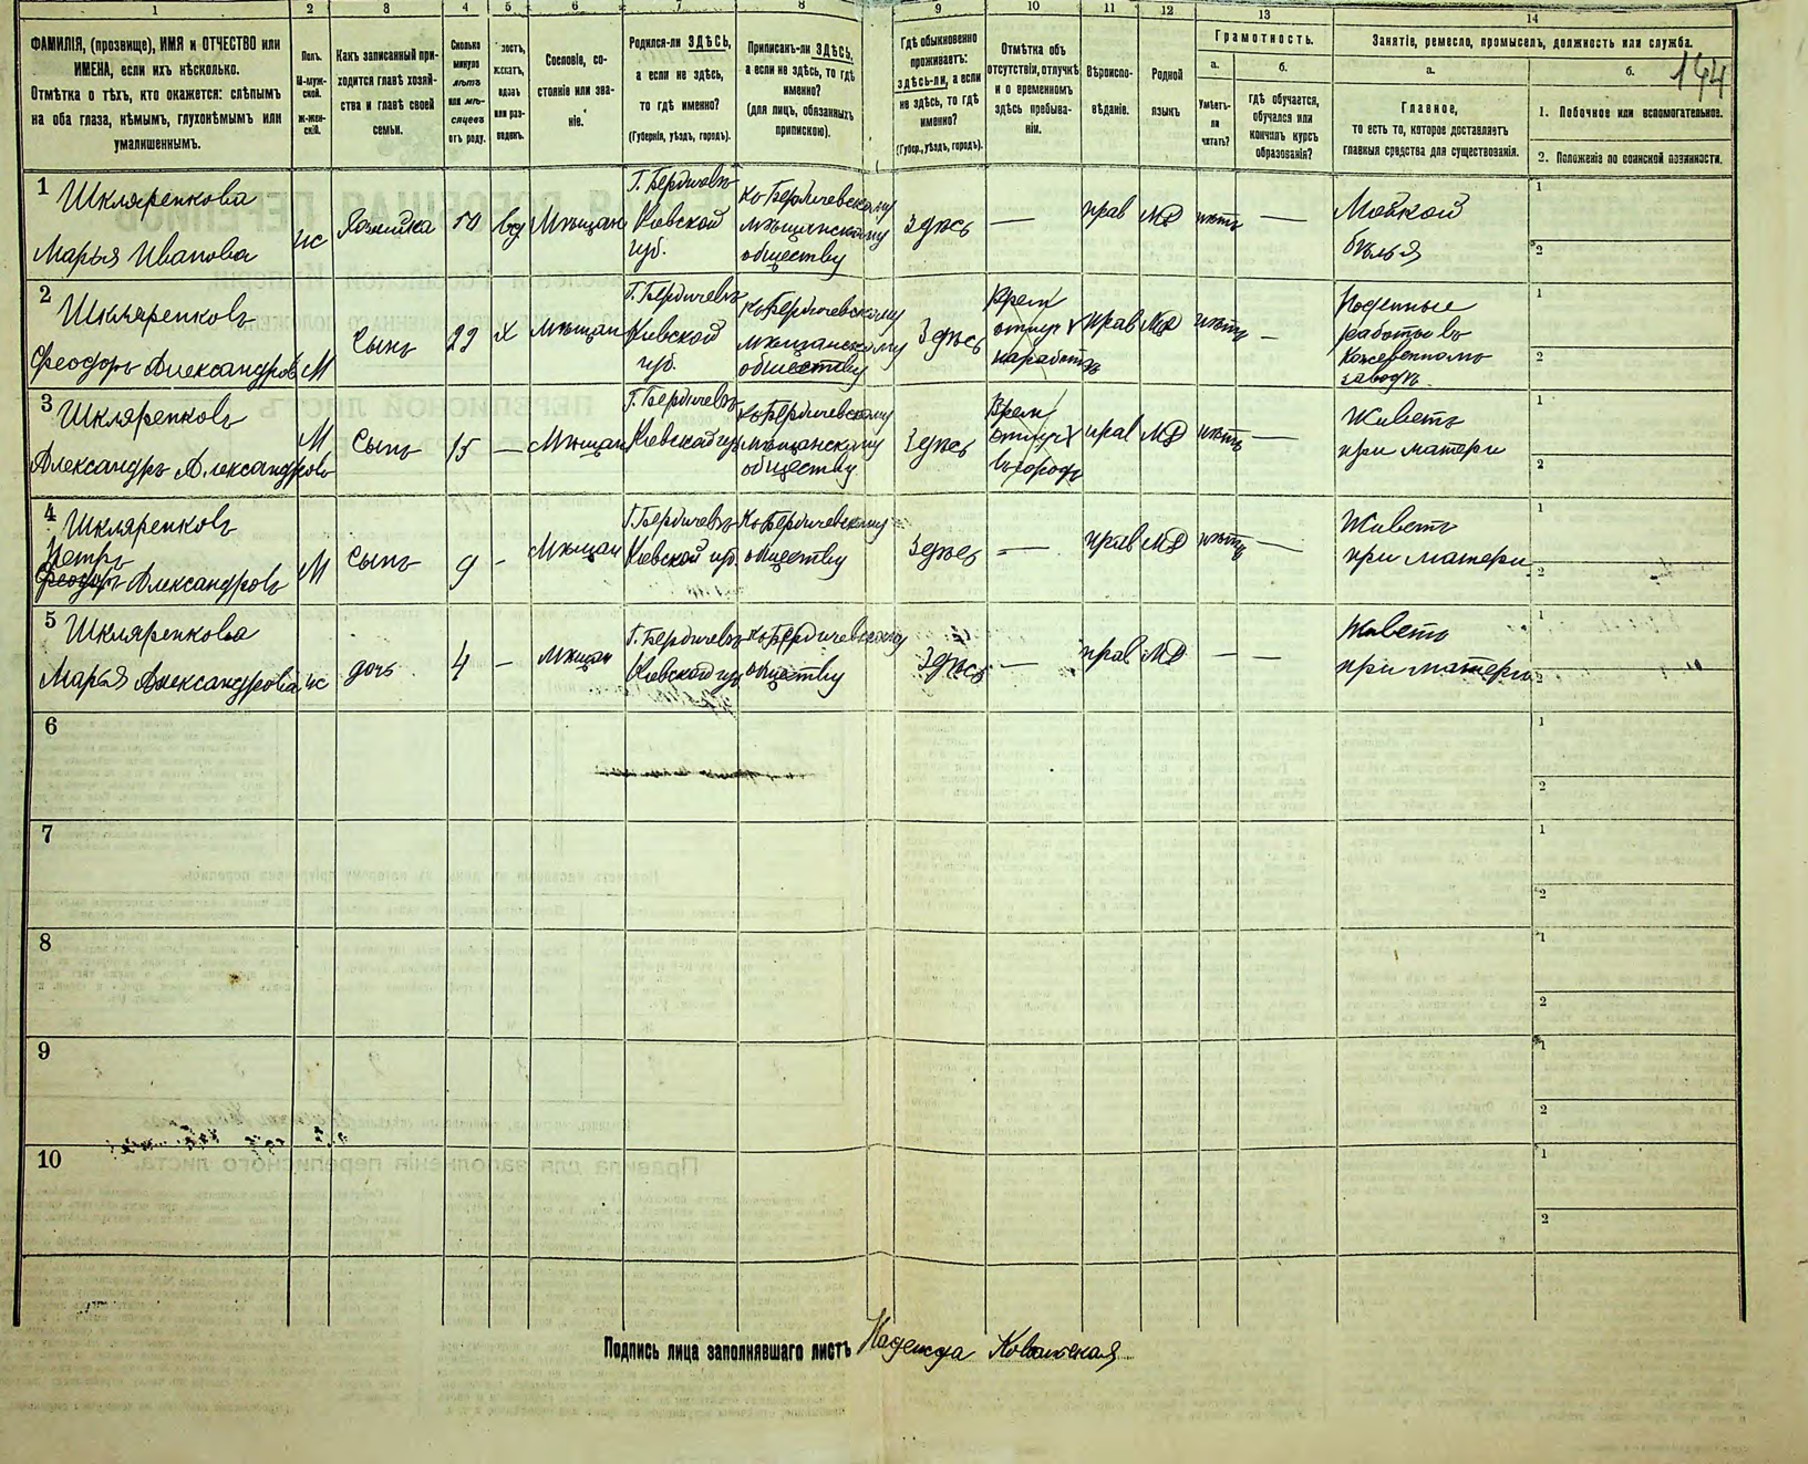 1 2 3 4 5 6 7 8 9 10 11 12 13 14
ФАМИЛІЯ, (прозвище), ИМЯ и ОТЧЕСТВО или
ИМЕНА, если ихъ нѣсколько.
Отмѣтка о тѣхъ, кто окажется: слѣпымъ
на оба глаза, нѣмымъ, глухонѣмымъ или
умалишеннымъ.
Полъ.
М-муж-
ской.
Ж-жен-
скій.
Какъ записанный при-
ходится главѣ хозяй-
ства и главѣ своей
семьи.
Сколько
минуло
лѣтъ
или мѣ-
сяцевъ
отъ роду.
лостъ,
женатъ,
вдовъ
или раз-
веденъ.
Сословіе, со-
стояніе или зва-
ніе.
Родился-ли ЗДѢСЬ,
а если не здѣсь,
то гдѣ именно?
(Губернія, уѣздъ, городъ).
Приписанъ-ли ЗДѢСЬ,
а если не здѣсь, то гдѣ
именно?
(для лицъ, обязанныхъ
припискою).
Гдѣ обыкновенно
проживаетъ:
здѣсь-ли, а если
не здѣсь, то гдѣ
именно?
(Губер., уѣздъ, городъ).
Отмѣтка объ
отсутствіи, отлучкѣ
и о временномъ
здѣсь пребыва-
ніи.
Вѣроиспо-
вѣданіе.
Родной
языкъ
Грамотность.
а.
Умѣетъ-
ли
читать?
б.
гдѣ обучается,
обучался или
кончилъ курсъ
образованія?
Занятіе, ремесло, промыселъ, должность или служба.
144
а.
Главное,
то есть то, которое доставляетъ
главныя средства для существованія.
б.
1. Побочное или вспомогательное.
2. Положеніе по воинской повинности.
1 Шкляренкова
Марья Иванова
ж
Хозяйка
50
вд
Мѣщан
Г. Бердичевъ
Кіевской
губ.
Къ Бердичевскому
мѣщанскому
обществу
Здѣсь
—
прав
МР
нѣтъ
—
Мойкой
бѣлья
1
2
2 Шкляренковъ
Феодоръ Александровъ
М
Сынъ
22
х
Мѣщан
Г. Бердичевъ
Кіевской
губ.
Къ Бердичевскому
мѣщанскому
обществу
Здѣсь
Врем
отлуч
на работѣ
прав
МР
нѣтъ
—
Поденные
работы въ
Кожевенномъ
заводѣ
1
2
3 Шкляренковъ
Александръ Александровъ
М
Сынъ
15
—
Мѣщан
Г. Бердичевъ
Кіевской губ
Къ Бердичевскому
мѣщанскому
обществу
Здѣсь
Врем
отлуч
въ городѣ
прав
МР
нѣтъ
—
Живетъ
при матери
1
2
4 Шкляренковъ
Петръ
Феодоръ Александровъ
М
Сынъ
9
-
Мѣщан
Г. Бердичевъ
Кіевской губ.
Къ Бердичевскому
обществу
Здѣсь
—
прав
МР
нѣтъ
—
Живетъ
при матери
1
2
5 Шкляренкова
Марья Александрова
ж
дочь
4
—
Мѣщан
Г. Бердичевъ
Кіевской губ
Къ Бердичевскому
обществу
Здѣсь
—
прав
МР
—
—
Живетъ
при матери
1
2
6
1
2
7
1
2
8
1
2
9
1
2
10
1
2
Подпись лица заполнявшаго листъ Надежда